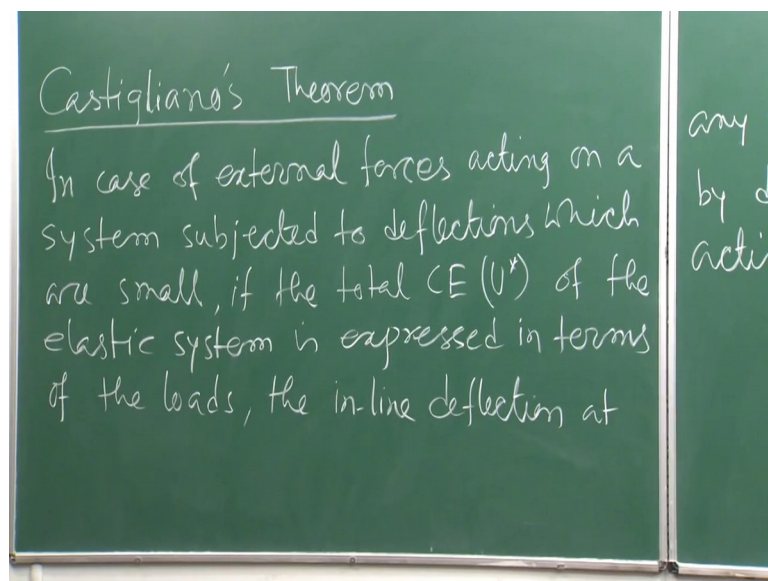 Castigliano's Theorem
In case of external forces acting on a
system subjected to deflections which
are small, if the total CE (U*) of the
elastic system is expressed in terms
of the loads, the in-line deflection at
any
by d
acti